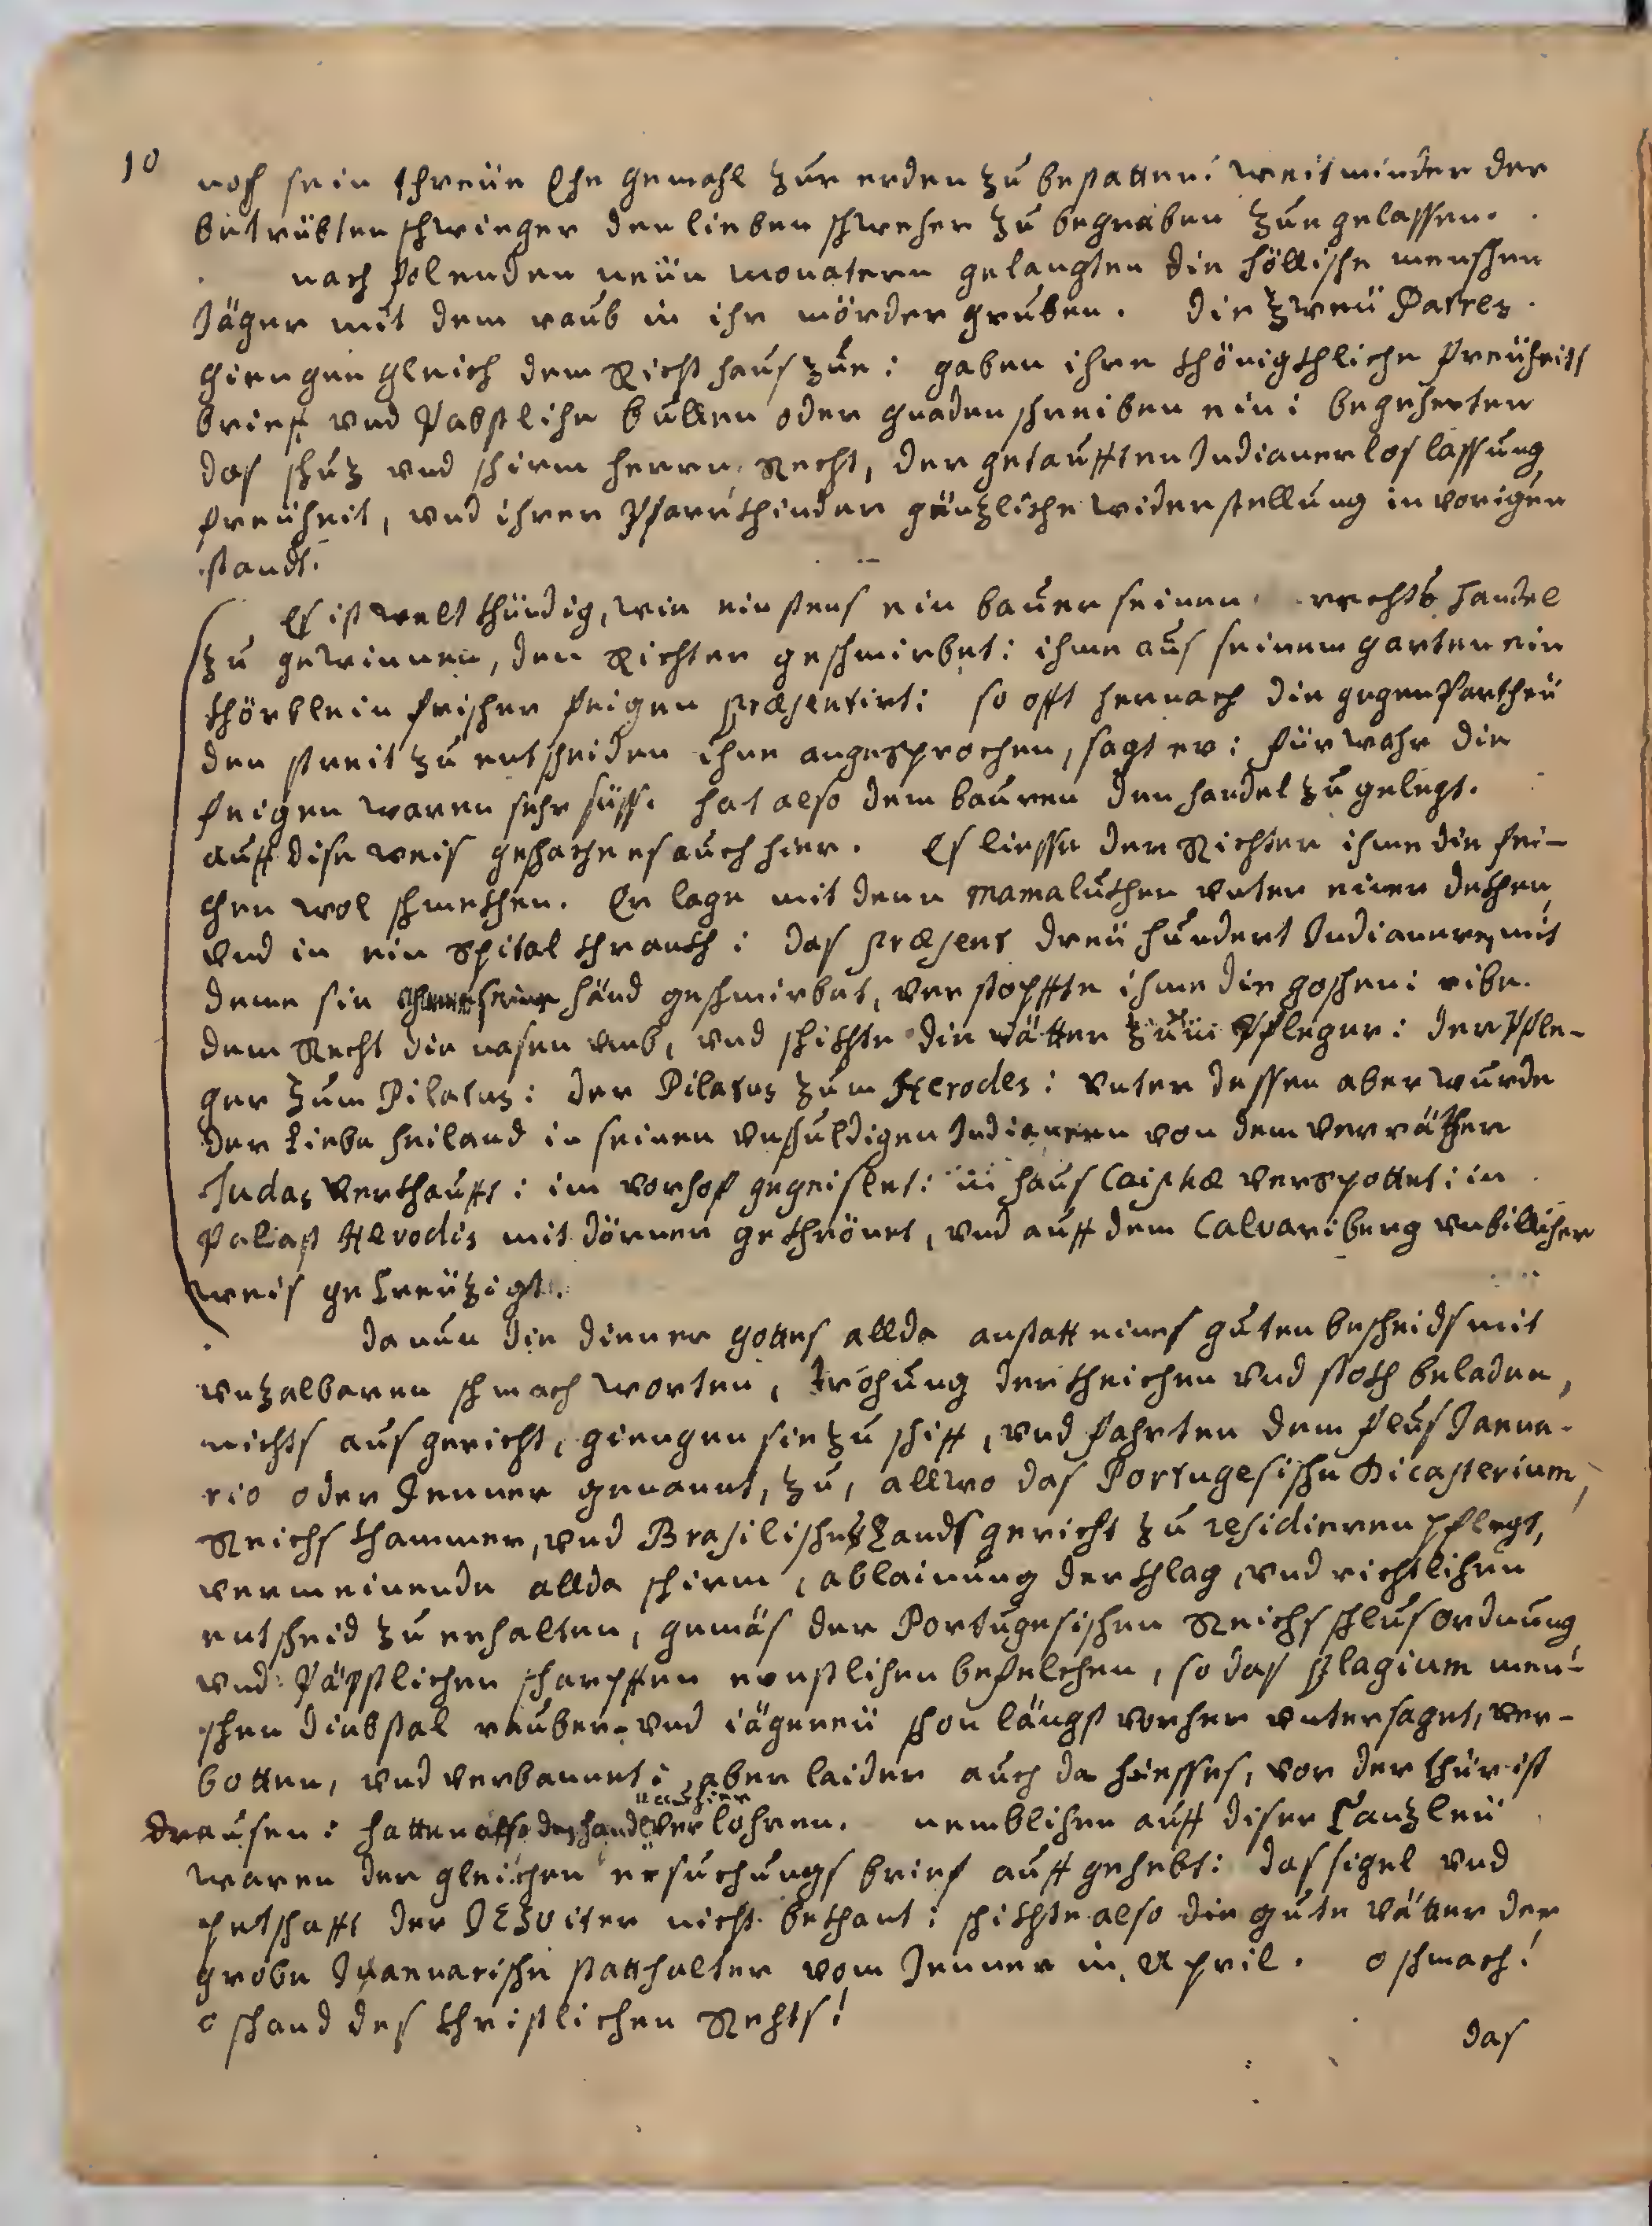 10
noch sein threüe Ehe gemahl zur erden zu bestatten: weit minder der
betrübten schwiger den lieben schweher zu begraben zue gelassen.
nach folenden neün monatern gelangten die höllische menschen
Jäger mit dem raub in ihr mörder gruben. die zweü Patres
giengen gleich dem Richt haus zue: gaben ihre khönigkhliche freüheits
brief vnd Pabstliche bullen oder gnaden schreiben ein: begehrten
das schuz vnd schirm herrn Recht, der getaufften Indianer los lassung
freüheit, vnd ihrer Pfarrkhinder gäntzliche widerstellung in vorigen
standt.
Es ist welt khündig, wie einstens ein bauer seinen rechts handel
zu gewinnen, den Richter geschmirbet: ihme aus seinem garten ein
khörblein frischer feigen præsentirt: so offt hernach die gegen Partheü
den streit zu entscheiden ihne angesprochen, sagt er: für wahr die
feigen waren sehr süss. hat also dem bauren den handel zu gelegt.
auff dise weis geschache es auch hier. Es liesse der Richter ihme die fei-
gen wol schmekhen. Er lage mit denn Mamalukhen vnter einer dekhen,
vnd in ein Spital khrankh: das præsent dreü hundert Indianere, mit
deme sie seine händ geschmirbet, verstopffte ihme die goschen: ribe
dem Recht die nasen vmb, vnd schikhte die vätter zum Pfleger: der Pfle-
ger zum Pilatus: der Pilatus zum Herodes: vnter dessen aber wurde
der liebe heiland in seinen vnschuldigen Indianern von dem verräther
Judas verkhaufft: im vorhof gegeislet: in haus Caiphæ verspottet: in
Palast Herodis mit dörnen gekhrönet, vnd auff dem Calvariberg vnbillicher
weis gecreüzigt.
da nun die diener gottes allda anstatt eines guten bescheids mit
vnzalbaren schmach worten, tröhung der kheichen vnd stokh beladen,
nichts aus gericht, giengen sie zu schiff, vnd fahrten dem flus Janua-
rio oder Jenner genannt, zu, allwo das Portugesische Dicasterium,
Reichs khammer, vnd Brasilisches Lands gericht zu residieren pflegt,
vermeinende allda schirm, ablainung der khlag, vnd richtlichen
entscheid zu erhalten, gemäs der Portugesischen Reichs schlus ordnung
vnd Päpstlichen scharpffen ernstlichen befelchen, so das plagium men-
schen diebstal rauber- vnd jägereü schon längst vorher vntersaget, ver-
botten, vnd verbannet: aber laider auch da hiesses, vor der thür ist
auch hier
drausen: hatten also den handl verlohren. nemblichen auff diser Canzleü
waren der gleichen ersuchungs brief auff gehebt: das sigel vnd
petschafft der JESuiter nicht bekhant: schikhte also die gute vätter der
grobe Januarische statthalter vom Jenner in April. o schmach!
o schand des khristlichen Rechts!
das